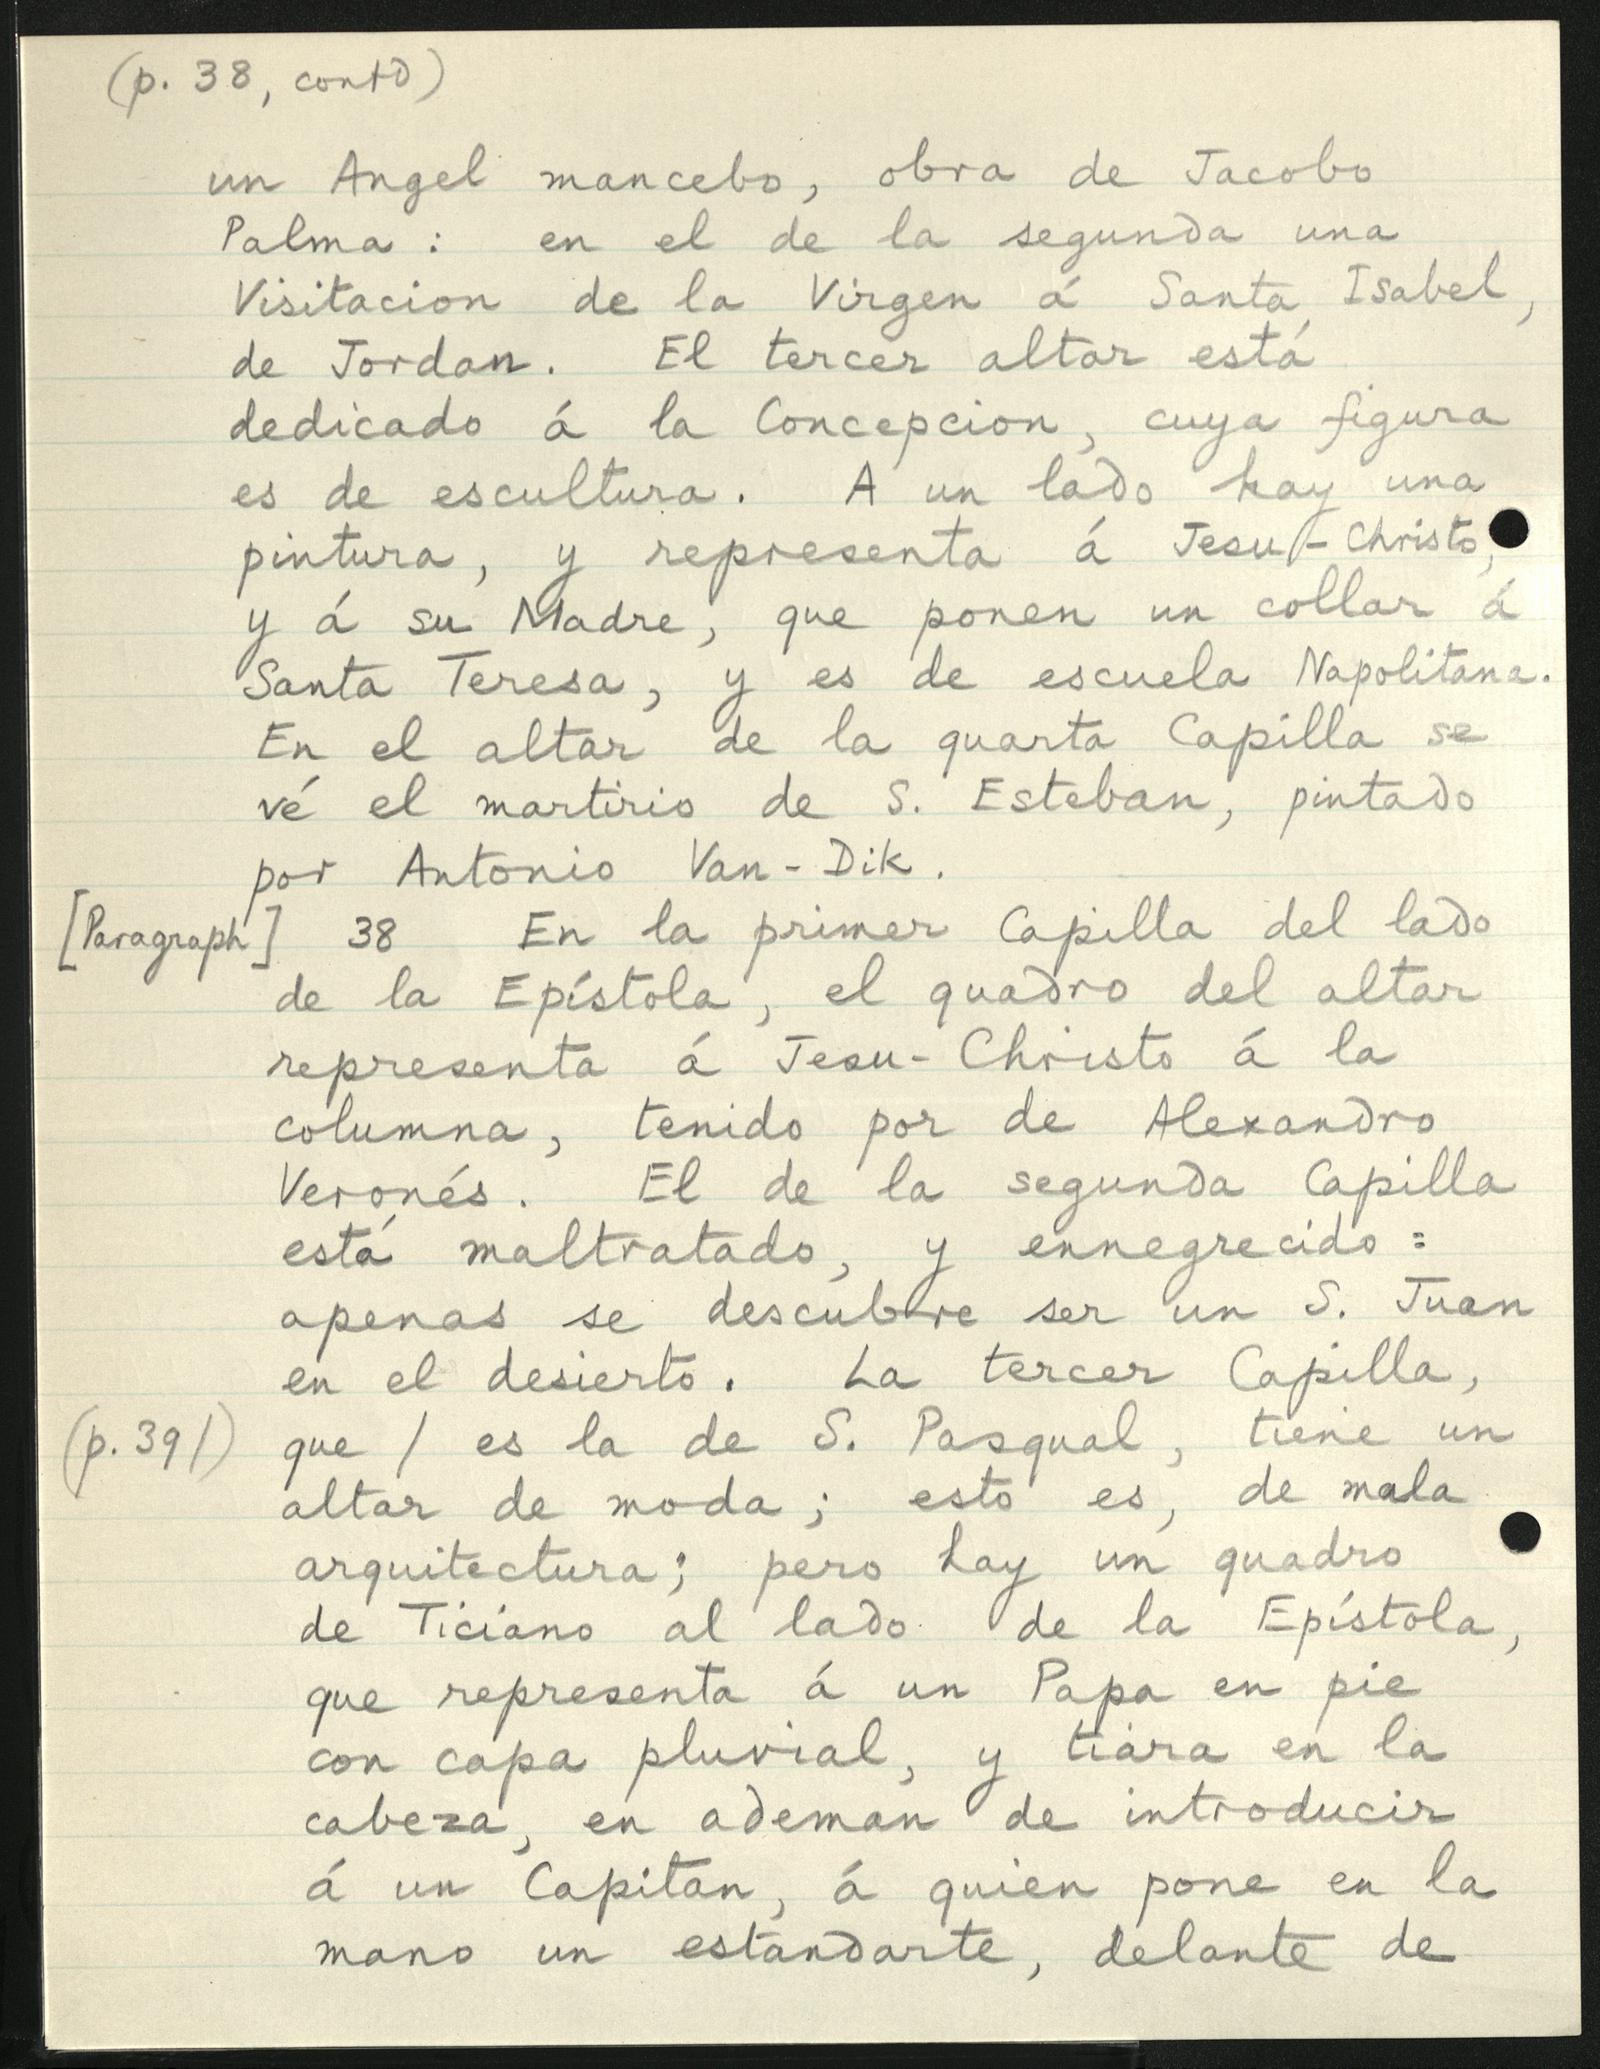 (p. 38, contd)
un Angel mancebo, obra de Jacobo
Palma: en el de la segunda una
Visitacion de la Virgen á Santa Isabel,
de Jordan. El tercer altar está
dedicado á la Concepcion, cuya figura
es de escultura. A un lado hay una
pintura, y representa á Jesu-Christo,
y á su Madre, que ponen un collar á
Santa Teresa, y es de escuela Napolitana.
En el altar de la quarta Capilla se
vé el martirio de S. Esteban, pintado
por Antonio Van-Dik.
[Paragraph] 38 En la primer Capilla del lado
de la Epístola, el quadro del altar
representa á Jesu-Christo á la
columna, tenido por de Alexandro
Veronés. El de la segunda Capilla
está maltratado, y ennegrecido:
apenas se descubre ser un S. Juan
en el desierto. La tercer Capilla,
(p. 39/) que / es la de S. Pasqual, tiene un
altar de moda; esto es, de mala
arquitectura; pero hay un quadro
de Ticiano al lado de la Epístola,
que representa á un Papa en pie
con capa pluvial, y tiara en la
cabeza, en ademan de introducir
á un Capitan, á quien pone en la
mano un estandarte, delante de